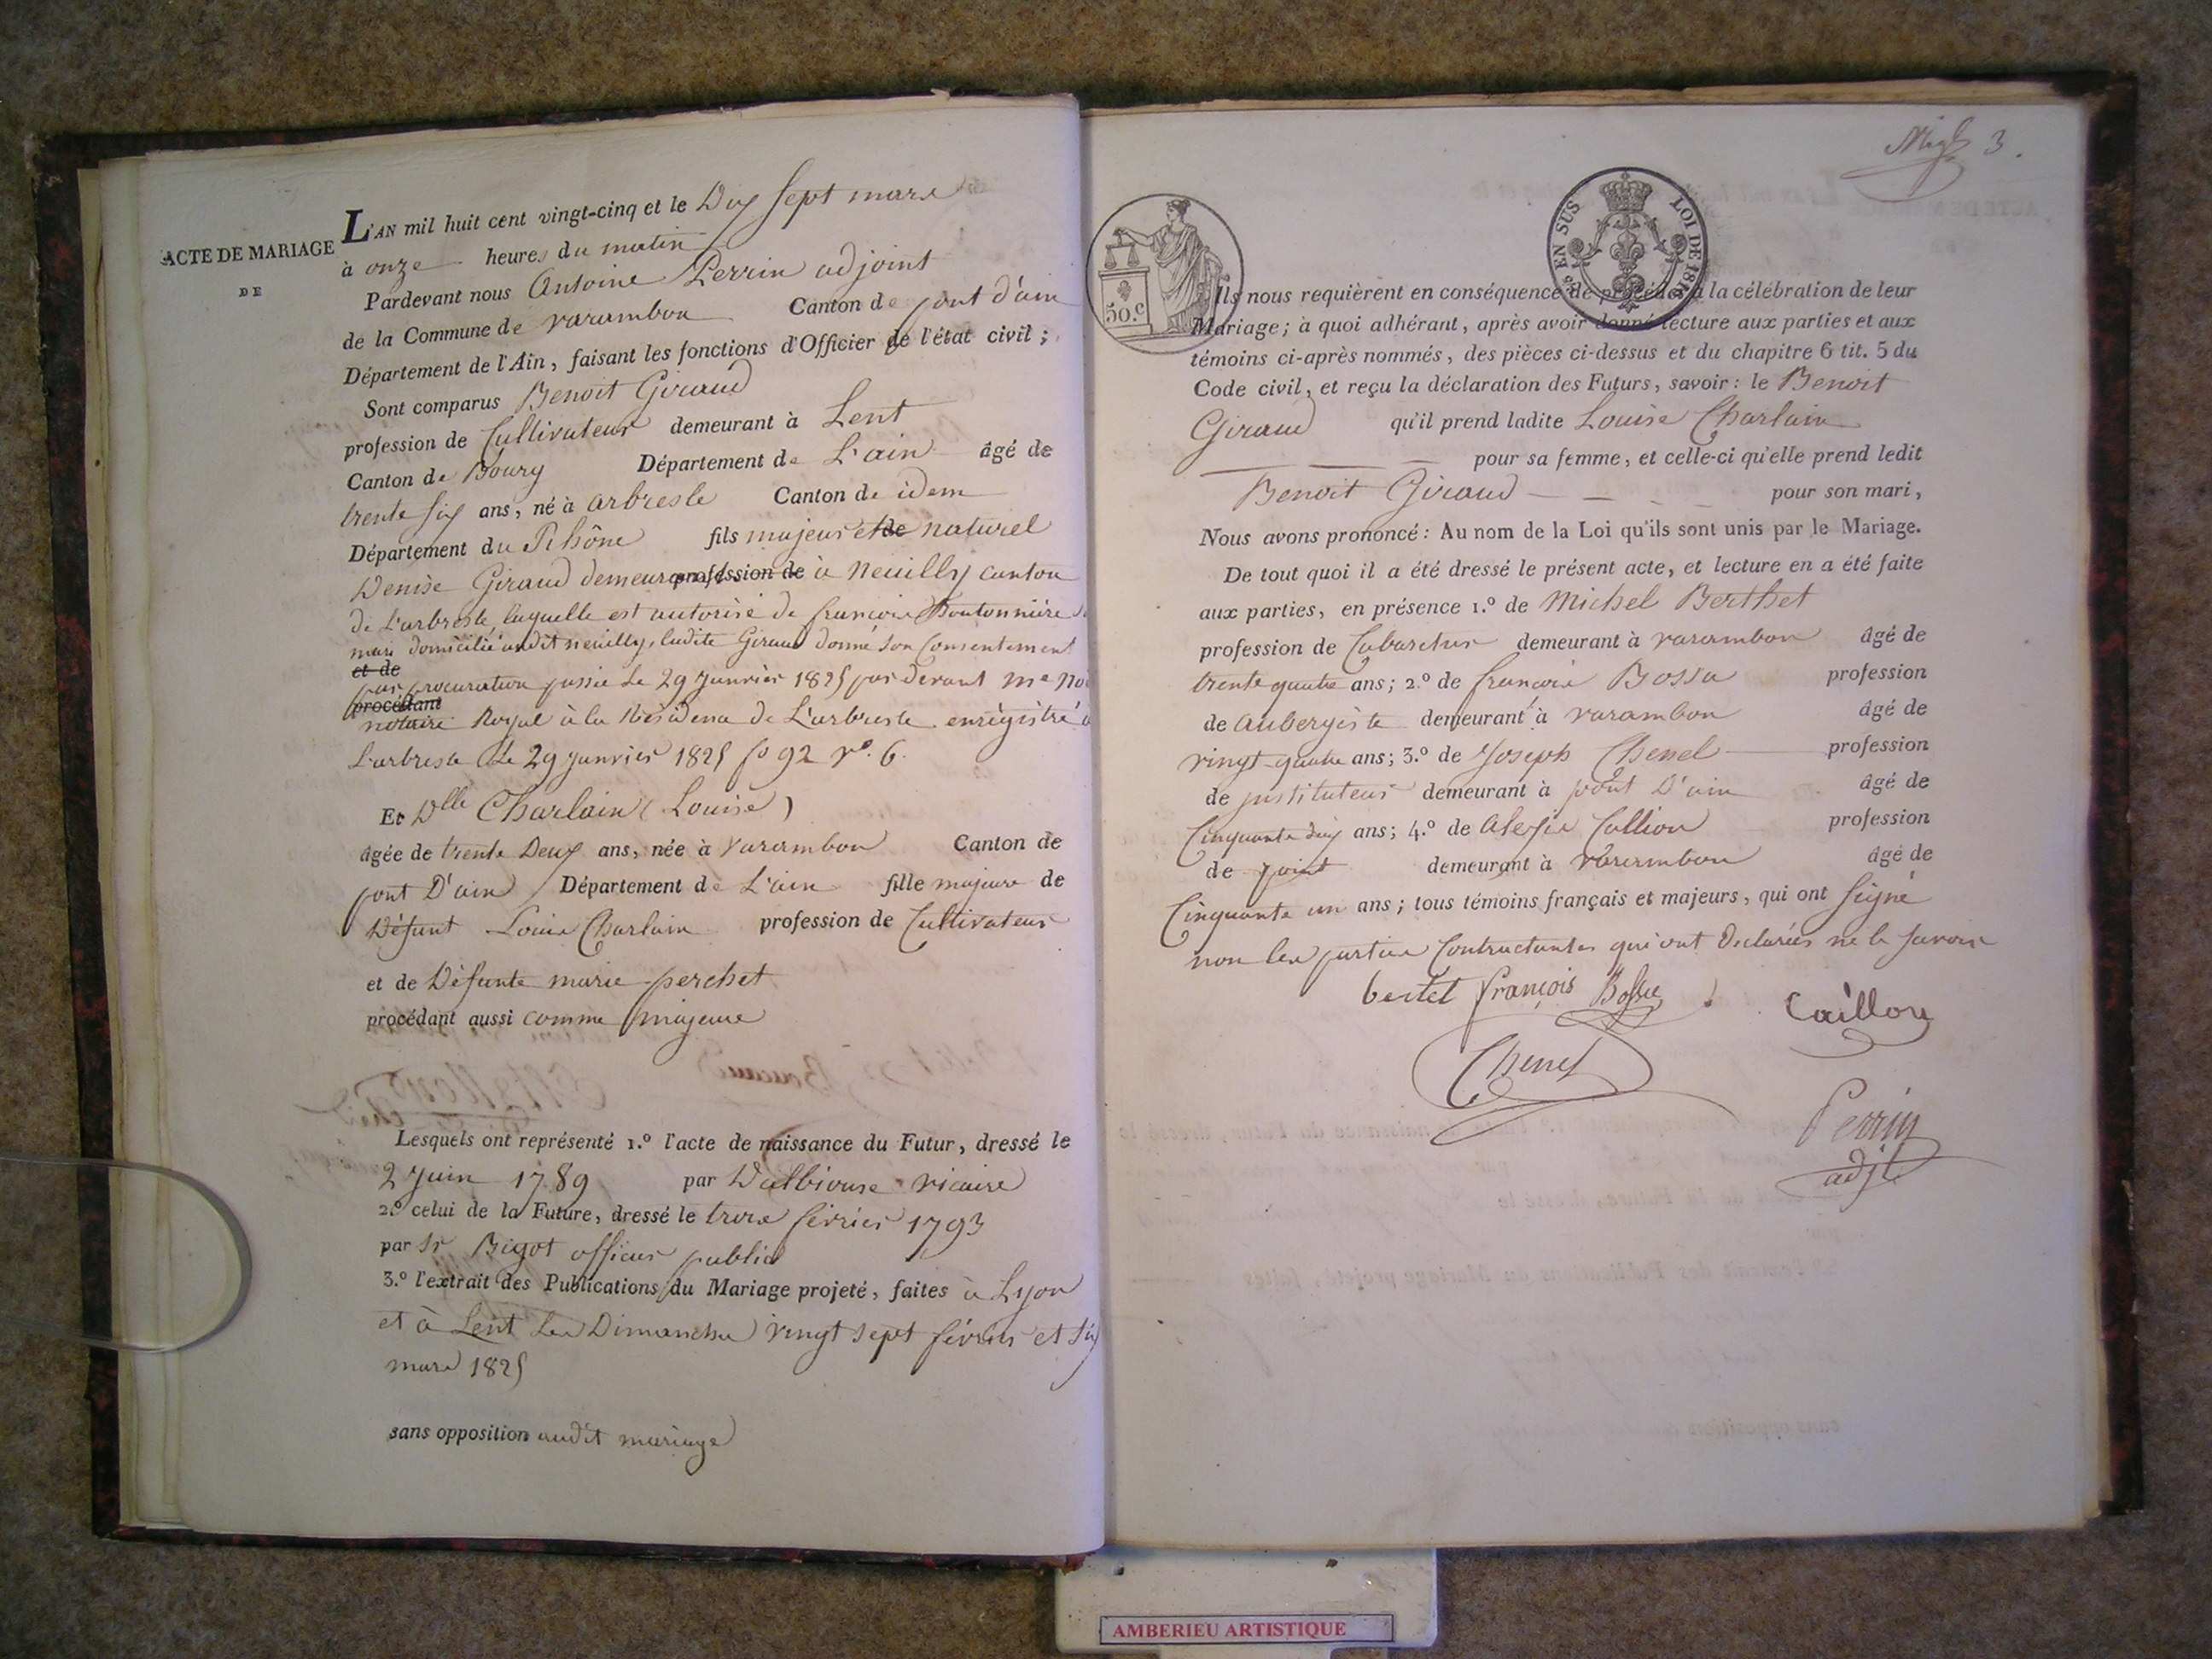 ACTE DE MARIAGE
DE
L'AN mil huit cent vingt-cinq et le Dix sept mars
à onze heures du matin
Pardevant nous Antoine Perrin adjoint
de la Commune de varambon Canton de pont d'ain
Département de l'Ain, faisant les fonctions d'Officier de l'état civil ;
Sont comparus Benoit Giraud
profession de Cultivateur demeurant à Lent
Canton de Bourg Département de L'ain âgé de
trente six ans, né à arbresle Canton de idem
Département du Rhône fils majeur et de naturel
Denise Giraud demeurant profession de à Neuilly canton
de L'arbresle, laquelle est autorisé de françois Boutonnière
mari domicilié audit neuilly, ladite Giraud donné son Consentement
et de
par procuration passée le 29 Janvier 1825 par devant me
procédant
notaire Royal à la Résidence de L'arbresle enrègistré à
L'arbresle le 29 janvier 1825 fo 92 vo. 6.
Et Dlle Charlain (Louise)
âgée de trente Deux ans, née à varambon Canton de
pont D'ain Département de L'ain fille majeure de
Défunt Louis Charlain profession de Cultivateur
et de Défunte marie perchet
procédant aussi comme majeure
Lesquels ont représenté 1.º l'acte de naissance du Futur, dressé le
2 Juin 1789 par Dalbiouse vicaire
2.º celui de la Future, dressé le trois février 1793
par Sr Bigot officier public
3.º l'extrait des Publications du Mariage projeté, faites à Lyon
et à Lent les Dimanches vingt sept février et six
mars 1825
sans opposition audit mariage
3.
EN SUS LOI DE 1816
50.c
Ils nous requièrent en conséquence de procéder à la célébration de leur
Mariage; à quoi adhérant, après avoir donné lecture aux parties et aux
témoins ci-après nommés, des pièces ci-dessus et du chapitre 6 tit. 5 du
Code civil, et reçu la déclaration des Futurs, savoir : le Benoit
Giraud qu'il prend ladite Louise Charlain
pour sa femme, et celle-ci qu'elle prend ledit
Benoit Giraud pour son mari,
Nous avons prononcé : Au nom de la Loi qu'ils sont unis par le Mariage.
De tout quoi il a été dressé le présent acte, et lecture en a été faite
aux parties, en présence 1.º de Michel Berthet
profession de Cabaretier demeurant à varambon âgé de
trente quatre ans ; 2.º de françois Bossu profession
de aubergiste demeurant à varambon âgé de
vingt-quatre ans ; 3.º de Joseph Chenel profession
de jnstituteur demeurant à pont D'ain âgé de
Cinquante six ans ; 4.º de alexis Callion profession
de point demeurant à varambon âgé de
Cinquante un ans ; tous témoins français et majeurs, qui ont signé
non les parties Contractantes qui ont Declarées ne le savoir
bertet françois Bossu Caillon
Chenel
Perrin
adjt
AMBERIEU ARTISTIQUE